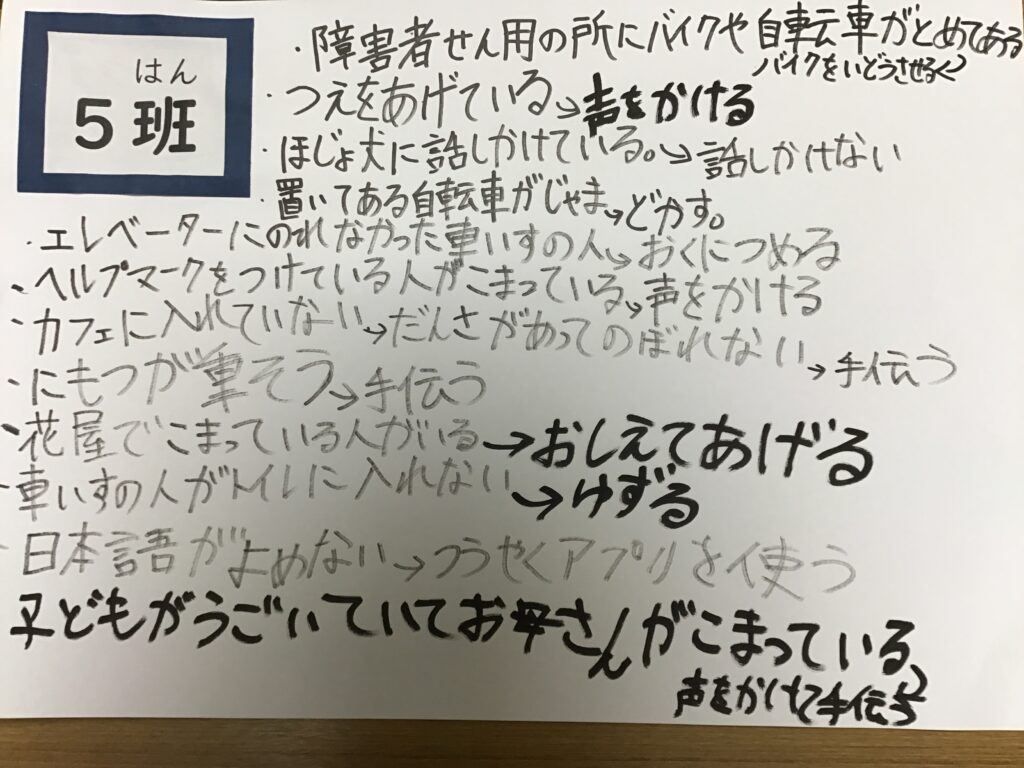 はん
5班
・障害者せん用の所にバイクや自転車がとめてある
バイクをいどうさせる
・つえをあげている→声をかける
・ほじょ犬に話しかけている。→話しかけない
・置いてある自転車がじゃま→どかす。
・エレベーターにのれなかった車いすの人→おくにつめる
・ヘルプマークをつけている人がこまっている→声をかける
・カフェに入れていない→だんさがあってのぼれない→手伝う
・にもつが重そう→手伝う
・花屋でこまっている人がいる→おしえてあげる
・車いすの人がトイレに入れない→ゆずる
・日本語がよめない→つうやくアプリを使う
子どもがうごいていてお母さんがこまっている
声をかけて手伝う